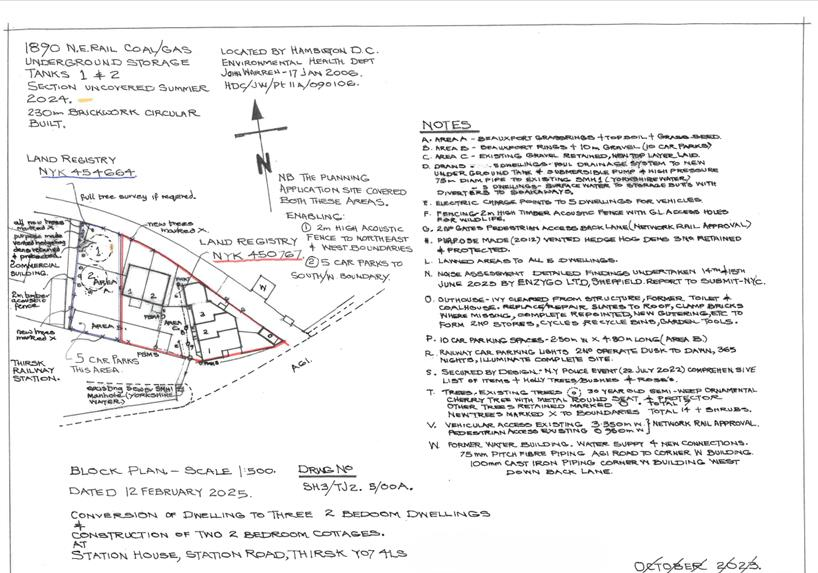 1890 N.E.RAIL COAL/GAS
UNDERGROUND STORAGE
TANKS 1 & 2
SECTION UNCOVERED SUMMER
2024.
230m BRICKWORK CIRCULAR
BUILT.
LOCATED BY HAMBLETON D.C.
ENVIRONMENTAL HEALTH DEPT
JOHN WARREN - 17 JAN 2006.
HDC/JW/Pt 11A/090106.
N
LAND REGISTRY
NYK 454664
full tree survey if required.
NB THE PLANNING
APPLICATION SITE COVERED
BOTH THESE AREAS.
ENABLING:
① 2m HIGH ACOUSTIC
FENCE TO NORTHEAST
& WEST BOUNDARIES
② 5 CAR PARKS TO
SOUTH/W. BOUNDARY.
LAND REGISTRY
NYK 450767
all new trees
marked X
new trees
marked X.
purpose made
vented hedgehog
dens retained
& protected.
COMMERCIAL
BUILDING.
2m timber
acoustic
fence
new trees
marked X
1
2
AREA
A
1
2
3
W
AREA
FSMH
FSMS
THIRSK
RAILWAY
STATION.
5 CAR PARKS
THIS AREA.
A61.
existing SMH1
Manhole (YORKSHIRE
WATER)
NOTES
A. AREA A - BEAUXFORT GRASSRINGS + TOPSOIL + GRASS SEED.
B. AREA B - BEAUXFORT RINGS + 10m GRAVEL (10 CAR PARKS)
C. AREA C - EXISTING GRAVEL RETAINED, NEW TOP LAYER LAID.
D. DRAINS - DWELLINGS - FOUL DRAINAGE SYSTEM TO NEW
UNDERGROUND TANK & SUBMERSIBLE PUMP & HIGH PRESSURE
75m DIAM PIPE TO EXISTING SMH1 (YORKSHIRE WATER)
- 5 DWELLINGS - SURFACE WATER TO STORAGE BUTS WITH
DIVERTERS TO SOAKAWAYS.
E. ELECTRIC CHARGE POINTS TO 5 DWELLINGS FOR VEHICLES.
F. FENCING - 2m HIGH TIMBER ACOUSTIC FENCE WITH GL ACCESS HOLES
FOR WILDLIFE.
G. 2 NO GATES PEDESTRIAN ACCESS BACK LANE (NETWORK RAIL APPROVAL)
H. PURPOSE MADE (2012) VENTED HEDGE HOG DENS 3NO RETAINED
& PROTECTED.
L. LAWNED AREAS TO ALL 5 DWELLINGS.
N. NOISE ASSESSMENT DETAILED FINDINGS UNDERTAKEN 14TH & 15TH
JUNE 2023 BY ENZYGO LTD, SHEFFIELD. REPORT TO SUBMIT-NYC.
O. OUTHOUSE - IVY CLEARED FROM STRUCTURE, FORMER TOILET &
COALHOUSE. REPLACE/REPAIR SLATES TO ROOF, CLAMP BRICKS
WHERE MISSING, COMPLETE REPOINTED, NEW GUTERING, ETC TO
FORM 2NO STORES, CYCLES RECYCLE BINS, GARDEN TOOLS.
P. 10 CAR PARKING SPACES - 2.50M W X 4.80M LONG (AREA B)
R. RAILWAY CAR PARKING LIGHTS 2NO OPERATE DUSK TO DAWN, 365
NIGHTS, ILLUMINATE COMPLETE SITE.
S. SECURED BY DESIGN - N.Y POLICE EVENT (22 JULY 2022) COMPREHENSIVE
LIST OF ITEMS + HOLLY TREES/BUSHES & ROSES.
T. TREES - EXISTING TREES 30 YEAR OLD SEMI-WEEP ORNAMENTAL
CHERRY TREE WITH METAL ROUND SEAT & PROTECTOR
OTHER TREES RETAINED MARKED O TOTAL 7
NEW TREES MARKED X TO BOUNDARIES TOTAL 14 + SHRUBS.
V. VEHICULAR ACCESS EXISTING 3.350M W } NETWORK RAIL APPROVAL.
PEDESTRIAN ACCESS EXISTING 0.960M W
W. FORMER WATER BUILDING. WATER SUPPY & NEW CONNECTIONS.
75mm PITCH FIBRE PIPING A61 ROAD TO CORNER W BUILDING.
100mm CAST IRON PIPING CORNER W BUILDING WEST
DOWN BACK LANE.
BLOCK PLAN - SCALE 1:500.
DATED 12 FEBRUARY 2025.
DRWG NO
SH3/TJ2. 5/00A.
CONVERSION OF DWELLING TO THREE 2 BEDOOM DWELLINGS
&
CONSTRUCTION OF TWO 2 BEDROOM COTTAGES.
AT
STATION HOUSE, STATION ROAD, THIRSK YO7 4LS
OCTOBER 2023.